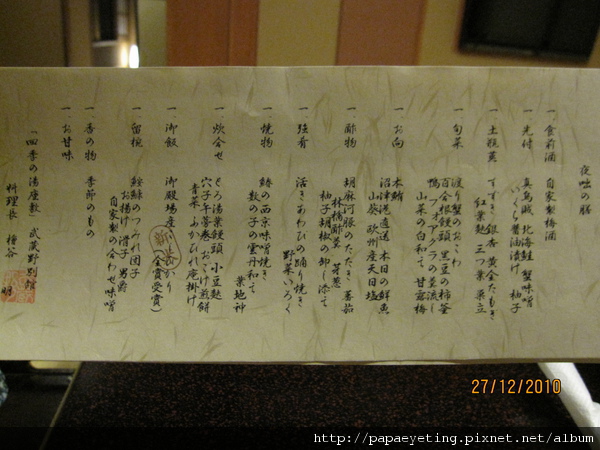 夜咄の膳
一、食前酒 自家製梅酒
一、先付 真烏賊 北海鮭 蟹味噌
いくら醤油漬け 柚子
一、土瓶蒸 すずき 銀杏 黄金たもぎ
紅葉麩 三つ葉 酢立
一、旬菜 渡り蟹のおこわ
百合根饅頭 黒豆の柿釜
鴨フォアグラの葱流し
山菜の白和え 甘露梅
一、お向 本鮪
沼津港直送 本日の鮮魚
山葵 欧州産天日塩
一、酢物 胡麻河豚のたたき 蕃茄
林檎酢 芽葱
柚子胡椒の卸し添え
一、強肴 活きあわびの踊り焼き
野菜いろいろ
一、焼物 鰆の西京味噌焼き
数の子の雲丹和え
葉地神
一、炊合せ とろ湯葉饅頭 小豆麩
穴子牛蒡巻 おこげ煎餅
青菜 ふかひれ庵掛け
一、御飯 御殿場産こしひかり
(金賞受賞)
新
一、留椀 鮟鱇のつみれ団子
お揚げ 滑子 男爵
自家製の合わせ味噌
一、香の物 季節のもの
一、お甘味
「四季の湯座敷」武蔵野別館
料理長 檜谷 明
27/12/2010
http://papaeyeting.pixnet.net/album